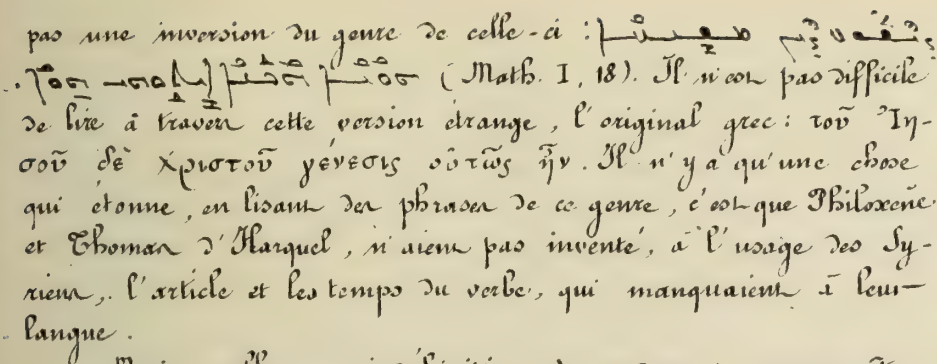 pas une inversion du genre de celle-ci :
(Math. I, 18). Il n'est pas difficile
de lire à travers cette version étrange, l'original grec : τοῦ Ἰη-
σοῦ δὲ Χριστοῦ γένεσις οὕτως ἦν. Il n'y a qu'une chose
qui étonne, en lisant des phrases de ce genre, c'est que Philoxène
et Thomas d'Harquel, n'aient pas inventé, à l'usage des Sy-
riens, l'article et les temps du verbe, qui manquaient à leur
langue.